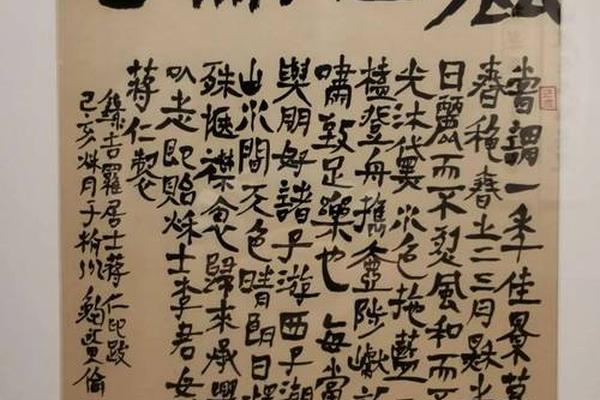 嘗謂一年佳景莫
春穐春之二三月穐之
日麗而不烈風和而不
光沐黛水色拖藍一
榼登舟攜壺陟巘放
嘯致足樂也每當
與朋好諸子游西子湖
山水間天色晴朗日
殊愜襟歸來乘興
即貽龢士李君
蔣仁製
集吉羅居士蔣仁印跋
己亥秋月于杭州鮑賢倫